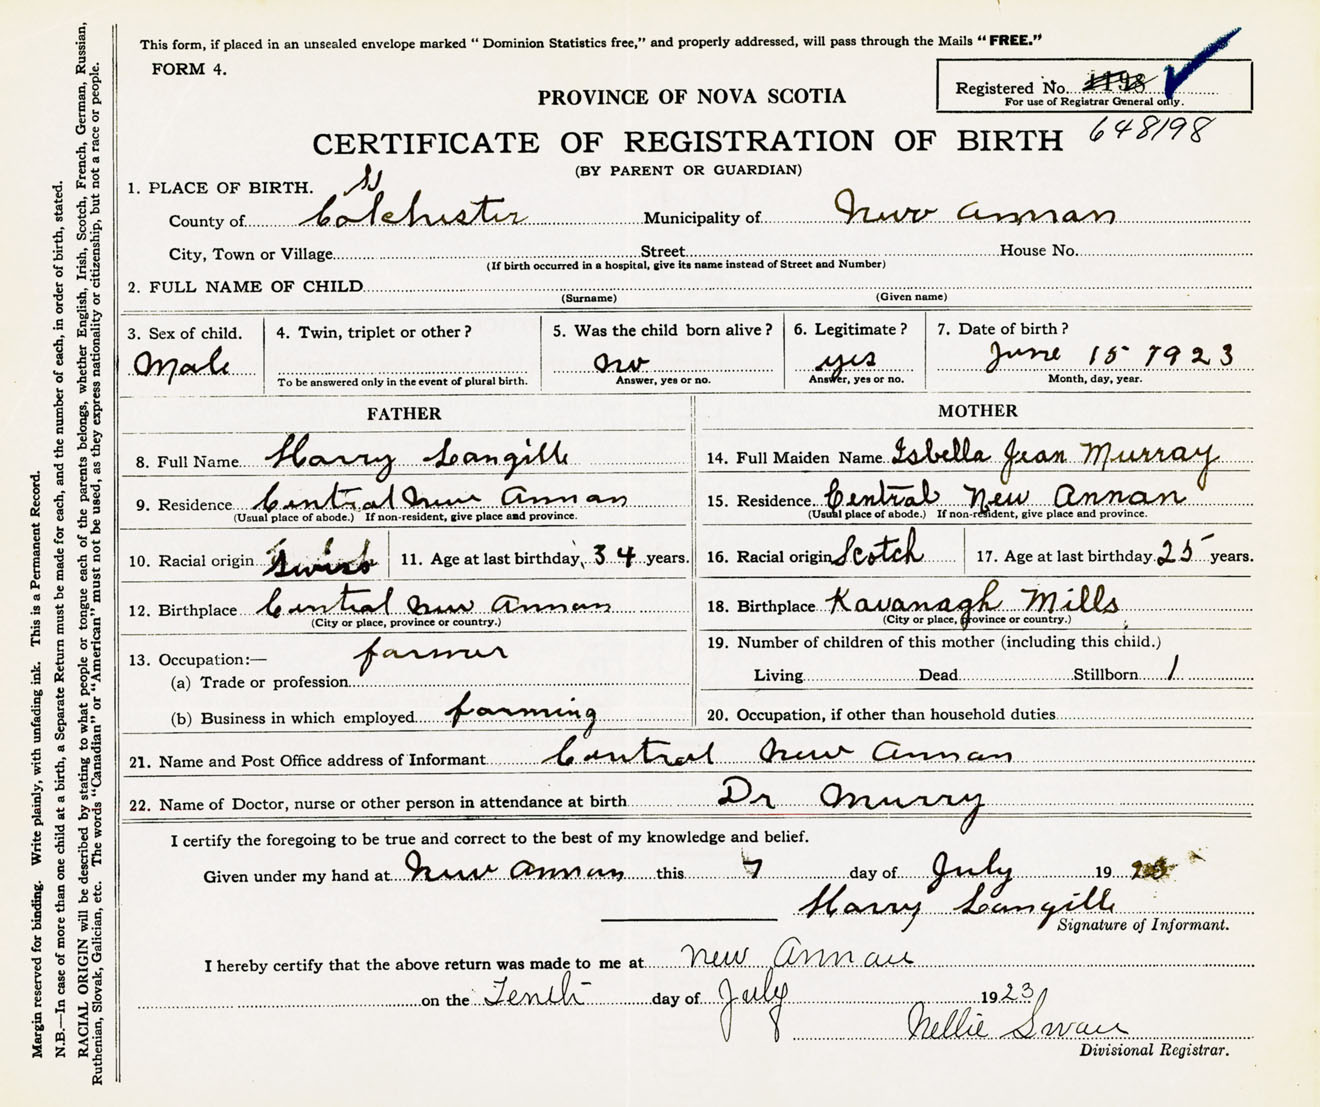 This form, if placed in an unsealed envelope marked “ Dominion Statistics free,” and properly addressed, will pass through the Mails “ FREE.”
FORM 4.
Registered No. 1198
For use of Registrar General only.
PROVINCE OF NOVA SCOTIA
648198
CERTIFICATE OF REGISTRATION OF BIRTH
(BY PARENT OR GUARDIAN)
1. PLACE OF BIRTH.
County of Colchester Municipality of New Annan
City, Town or Village Street House No.
(If birth occurred in a hospital, give its name instead of Street and Number)
2. FULL NAME OF CHILD
(Surname) (Given name)
3. Sex of child. 4. Twin, triplet or other? 5. Was the child born alive? 6. Legitimate? 7. Date of birth?
Male no yes June 15 1923
To be answered only in the event of plural birth. Answer, yes or no. Answer, yes or no. Month, day, year.
FATHER MOTHER
8. Full Name Harry Langille 14. Full Maiden Name Isbella Jean Murray
9. Residence Central New Annan 15. Residence Central New Annan
(Usual place of abode.) If non-resident, give place and province. (Usual place of abode.) If non-resident, give place and province.
10. Racial origin Swiss 11. Age at last birthday, 34 years. 16. Racial origin Scotch 17. Age at last birthday 25 years.
12. Birthplace Central New Annan 18. Birthplace Kavanagh Mills
(City or place, province or country.) (City or place, province or country.)
13. Occupation:— farmer 19. Number of children of this mother (including this child.)
(a) Trade or profession Living Dead Stillborn 1
(b) Business in which employed farming 20. Occupation, if other than household duties
21. Name and Post Office address of Informant Central New Annan
22. Name of Doctor, nurse or other person in attendance at birth Dr Murry
I certify the foregoing to be true and correct to the best of my knowledge and belief.
Given under my hand at New Annan this 7 day of July 1923
Harry Langille
Signature of Informant.
I hereby certify that the above return was made to me at New Annan
on the Tenth day of July 1923
Nellie Swan
Divisional Registrar.
Margin reserved for binding. Write plainly, with unfading ink. This is a Permanent Record.
N.B.—In case of more than one child at a birth, a Separate Return must be made for each, and the number of each, in order of birth, stated.
RACIAL ORIGIN will be described by stating to what people or tongue each of the parents belongs, whether English, Irish, Scotch, French, German, Russian,
Ruthenian, Slovak, Galician, etc. The words “Canadian” or “American” must not be used, as they express nationality or citizenship, but not a race or people.